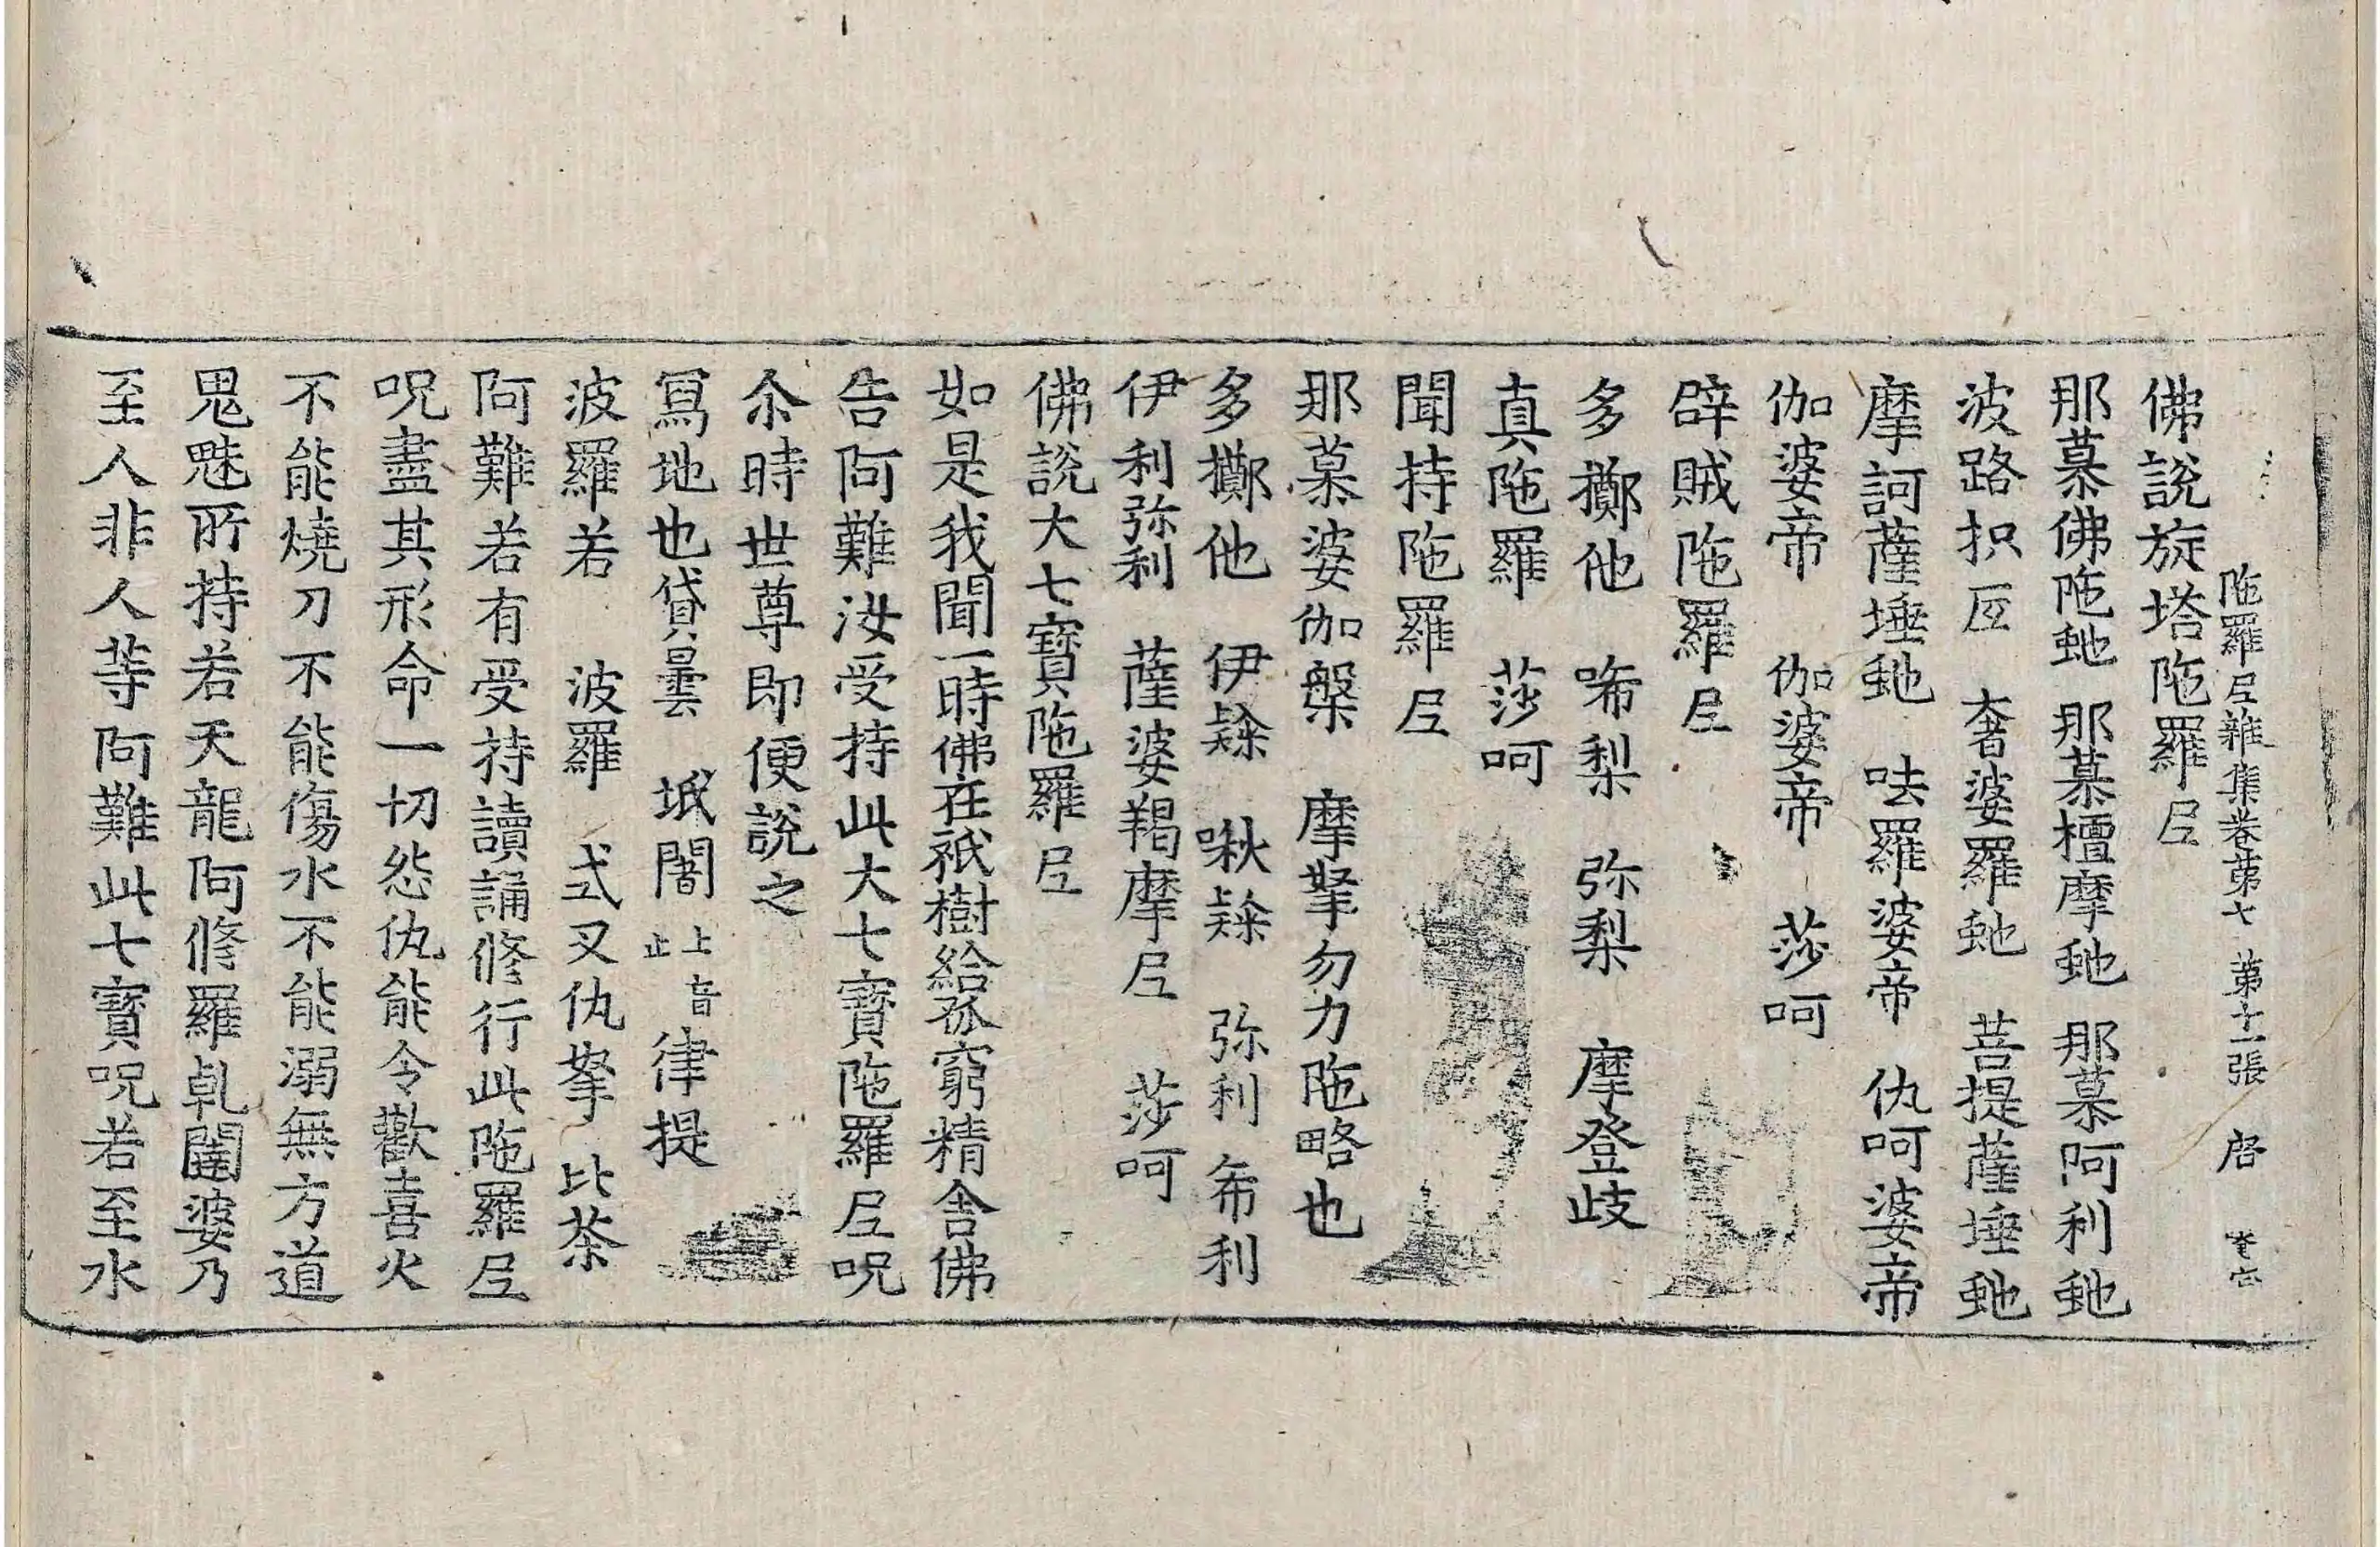 陁羅尼雜集卷第七 第十一張 唐
佛說旋塔陁羅尼
那慕佛陁虵 那慕檀摩虵 那慕阿利虵
波路枳㕓 奢婆羅虵 菩提薩埵虵
摩訶薩埵虵 呿羅婆帝 仇呵婆帝
伽婆帝 伽婆帝 莎呵
辟賊陁羅尼
多擲他 唏梨 弥梨 摩登歧
真陁羅 莎呵
聞持陁羅尼
那慕婆伽槃 摩拏勿力陁略也
多擲他 伊𨽻 啾𨽻 弥利 希利
伊利弥利 薩婆羯摩尼 莎呵
佛說大七寶陁羅尼
如是我聞一時佛在祇樹給孤窮精舍佛
告阿難汝受持此大七寶陁羅尼呪
尒時世尊即便說之
寫地也貸曇 坻闍上音止律提
波羅若 波羅 弍叉仇拏 比荼
阿難若有受持讀誦修行此陁羅尼
呪盡其形命一切怨仇能令歡喜火
不能燒刀不能傷水不能溺無方道
鬼魅所持若天龍阿修羅乹闥婆乃
至人非人等阿難此七寶呪若至水